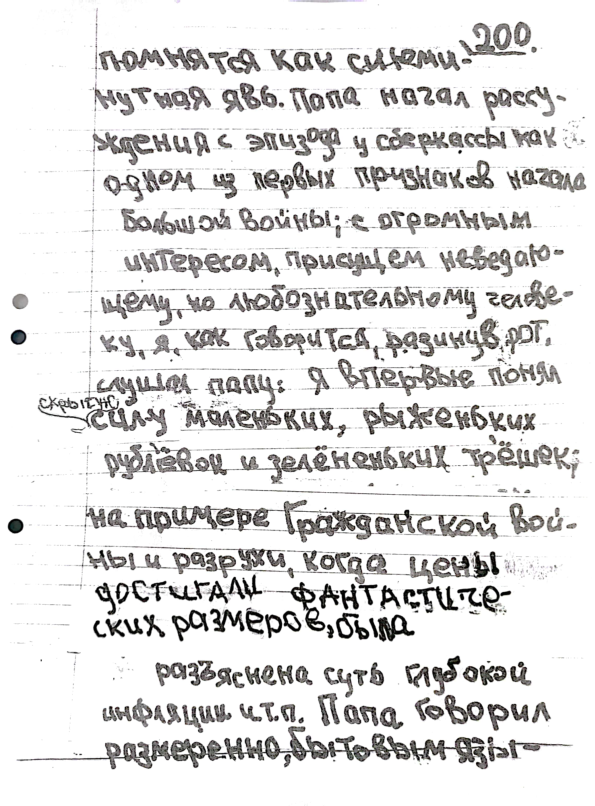 200.
помнятся как сиюми-
нутная явь. Папа начал рассу-
ждения с эпизода у сберкассы как
одном из первых признаков начала
большой войны; с огромным
интересом, присущем неведаю-
щему, но любознательному челове-
ку, я, как говорится, разинув рот,
слушал папу: я впервые понял
скрытую
силу маленьких, рыженьких
рублёвок и зелёненьких трёшек;
на примере Гражданской вой-
ны и разрухи, когда цены
достигали фантастиче-
ских размеров, была
разъяснена суть глубокой
инфляции и.т.п. Папа говорил
размеренно, бытовым язы-